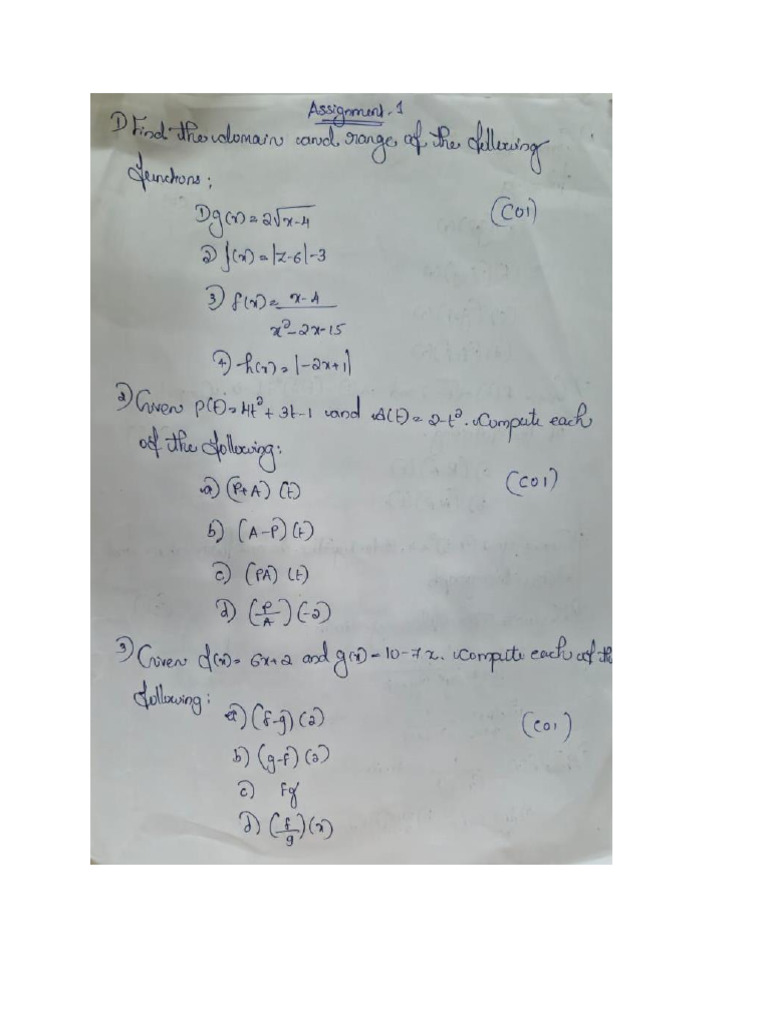 Assignment-1
1) Find the domain and range of the following
functions:
1) g(x) = 2√x-4 (CO1)
2) f(x) = |z-6|-3
3) f(x) = x-4
x²-2x-15
4) h(x) = |-2x+1|
2) Given P(t) = 4t²+3t-1 and A(t) = 2-t². Compute each
of the following:
a) (P+A)(t) (CO1)
b) (A-P)(t)
c) (PA)(t)
d) (P/A)(-2)
3) Given f(x) = 6x+2 and g(x) = 10-7x. Compute each of the
following:
a) (f-g)(2) (CO1)
b) (g-f)(2)
c) fg
d) (f/g)(x)